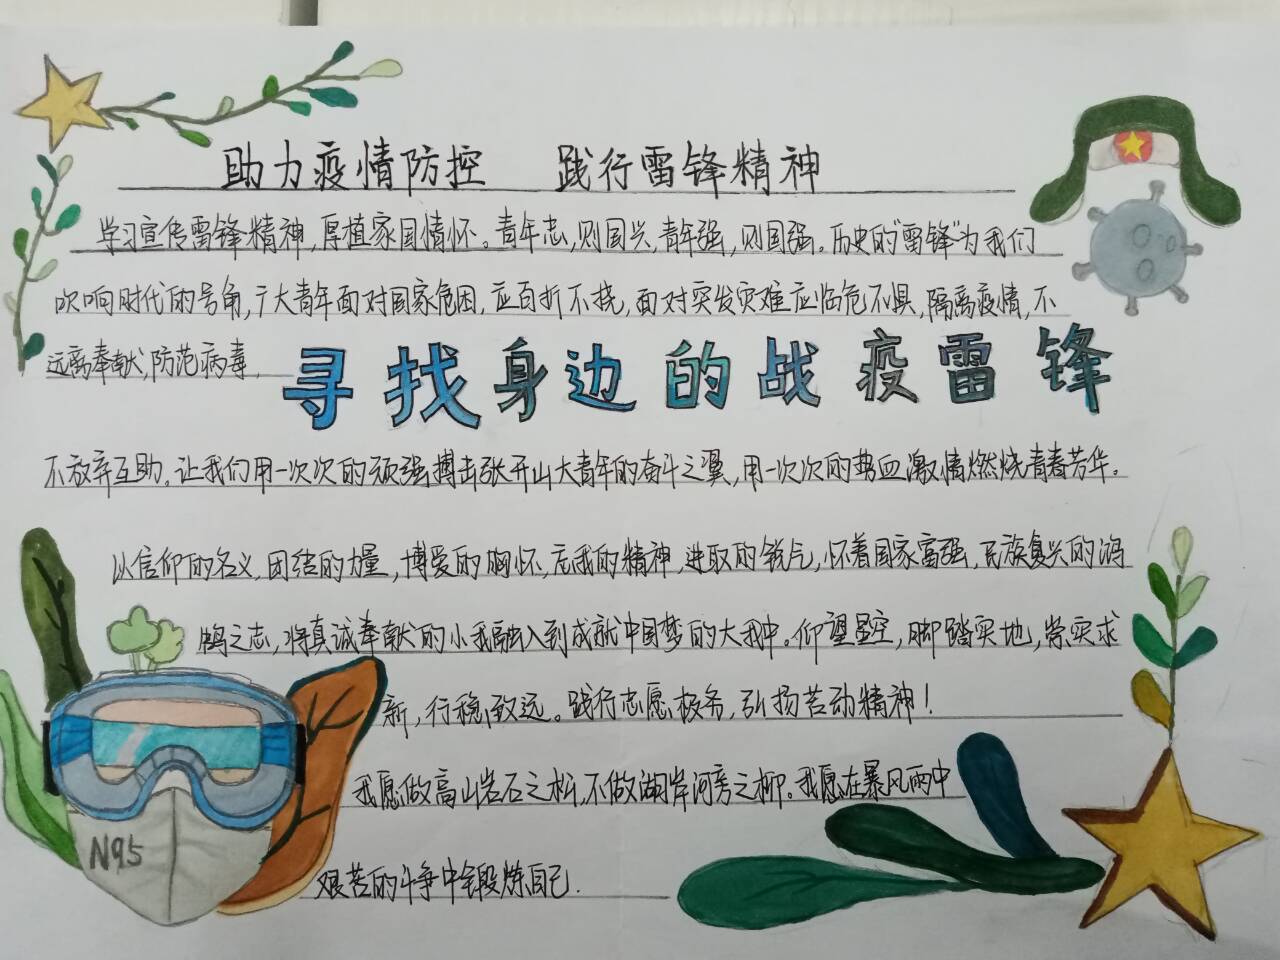 助力疫情防控 践行雷锋精神
学习宣传雷锋精神,厚植家国情怀。青年志,则国兴,青年强,则国强。历史的“雷锋”为我们
吹响时代的号角,广大青年面对国家危困,应百折不挠,面对突发灾难应临危不惧,隔离疫情,不
远离奉献,防范病毒,
寻找身边的战疫雷锋
不放弃互助。让我们用一次次的顽强搏击张开山大青年的奋斗之翼,用一次次的热血激情燃烧青春芳华。
以信仰的名义,团结的力量,博爱的胸怀,忘我的精神,进取的锐气,怀着国家富强,民族复兴的鸿
鹄之志,将真诚奉献的小我融入到成就中国梦的大我中。仰望星空,脚踏实地,常实求
新,行稳致远。践行志愿服务,弘扬劳动精神!
我愿做高山岩石之松,不做湖岸河旁之柳。我愿在暴风雨中
艰苦的斗争中锻炼自己.
N95